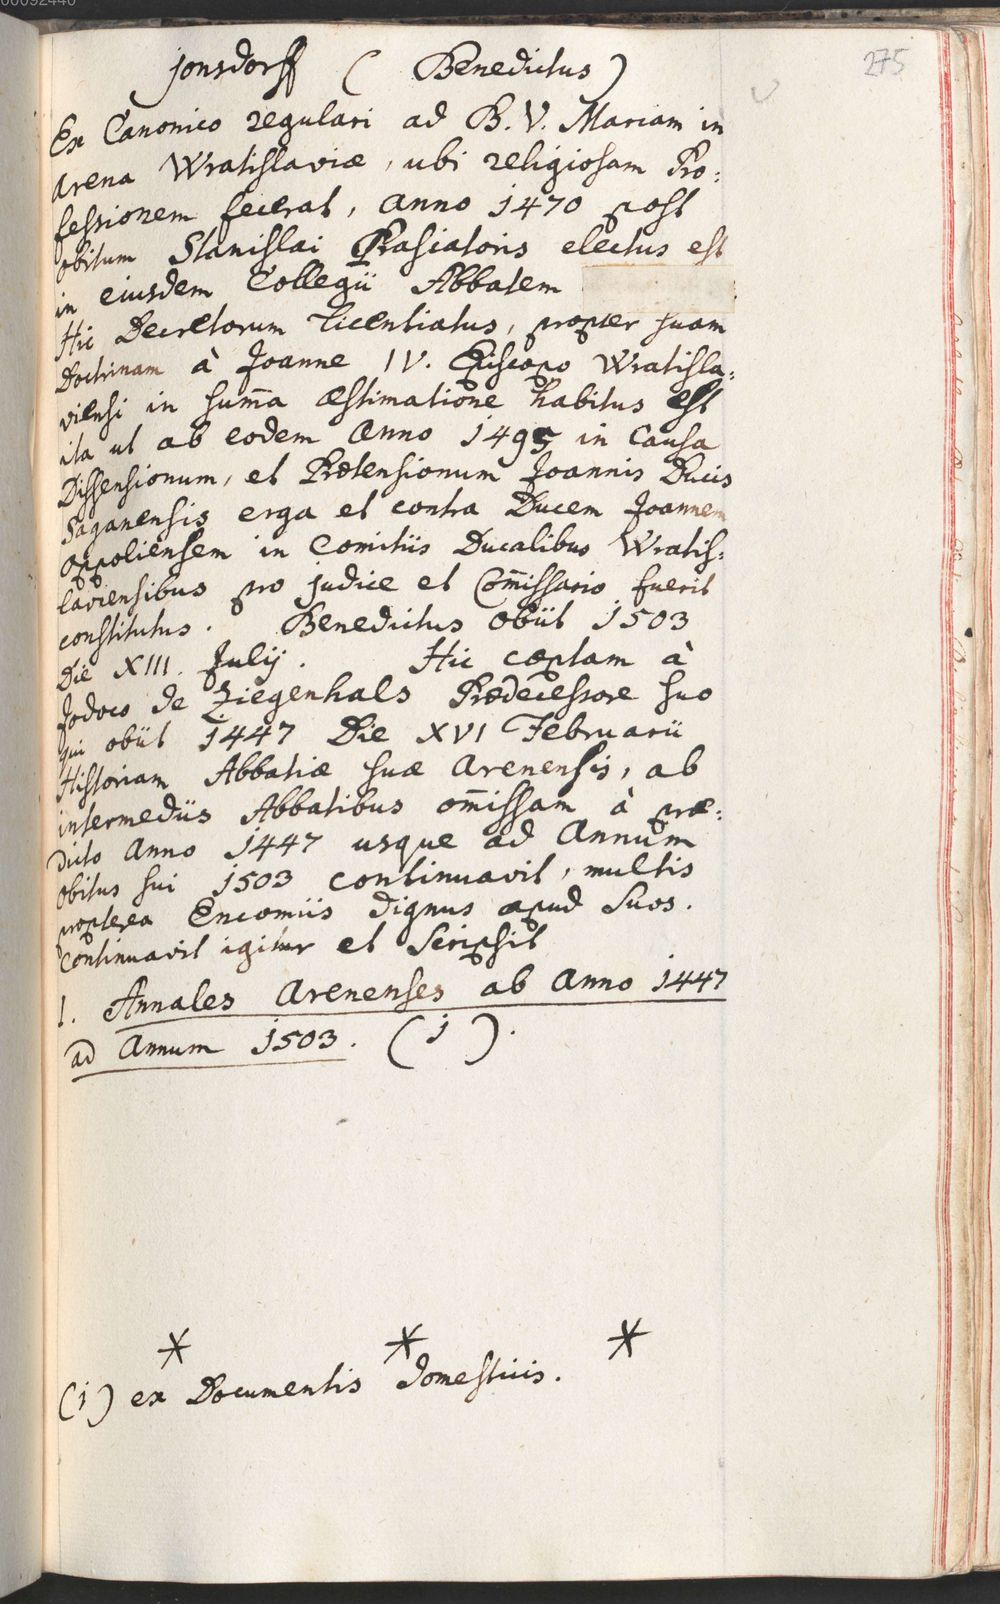 00092440
275
jonsdorff ( Benedictus )
Ex Canonico regulari ad B. V. Mariam in
arena Wratislaviæ, ubi religiosam Pro:
fessionem fecerat, anno 1470 post
obitum Stanislai electus est
in eiusdem Collegii Abbatem
Hic Decretorum licentiatus, propter suam
Doctrinam à Joanne IV. Episcopo Wratisla:
viensi in sum̄a æstimatione habitus est
ita ut ab eodem Anno 1495 in Causa
Dissensionum, et Prætensionum Joannis Ducis
Saganensis erga et contra Ducem Joannem
oppoliensem in Comitiis Ducalibus Wratis:
laviensibus pro judice et Com̄issario fuerit
constitutus. Benedictus obiit 1503
Die XIII. Julij. Hic cæptam à
Jodoco de Ziegenhals Prædecessore suo
qui obiit 1447 Die XVI Februarii
Historiam Abbatiæ suæ arenensis, ab
intermediis Abbatibus om̄issam à præ:
dicto anno 1447 usque ad Annum
obitus sui 1503 continuavit, multis
propterea Encomiis dignus apud Suos.
Continuavit igitur et scripsit
1. Annales arenenses ab anno 1447
ad annum 1503. (1).
* * *
(1) ex Documentis domesticis.